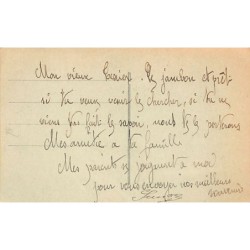 Mon vieux
Le jambon est prêt
si tu veux venir le chercher, si tu ne
viens pas fait le savoir, nous te le porterons
Mes amitié à ta famille
Mes parents se joignent à moi
pour vous envoyer nos meilleurs
souvenirs